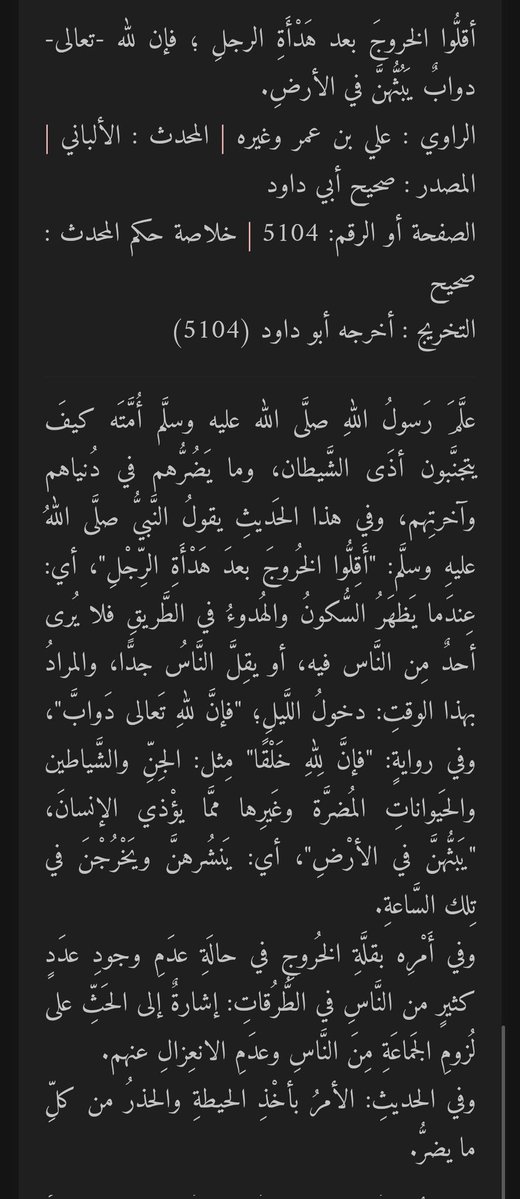 أقلُّوا الخروجَ بعد هَدْأَةِ الرجلِ ؛ فإن لله -تعالى-
دوابٌ يَبُثُّهنَّ في الأرضِ.
الراوي : علي بن عمر وغيره | المحدث : الألباني |
المصدر : صحيح أبي داود
الصفحة أو الرقم: 5104 | خلاصة حكم المحدث :
صحيح
التخريج : أخرجه أبو داود (5104)
علَّمَ رَسولُ اللهِ صلَّى الله عليه وسلَّم أُمَّتَه كيفَ
يتجنَّبون أذَى الشَّيطان، وما يَضُرُّهم في دُنياهم
وآخرتِهم، وفي هذا الحَديثِ يقولُ النَّبيُّ صلَّى اللهُ
عليهِ وسلَّم: "أَقِلُّوا الخُروجَ بعدَ هَدْأَةِ الرِّجْلِ"، أي:
عِندَما يَظهَرُ السُّكونُ والهُدوءُ في الطَّريقِ فلا يُرى
أحدٌ مِن النَّاس فيه، أو يقِلَّ النَّاسُ جدًّا، والمرادُ
بهذا الوقتِ: دخولُ اللَّيلِ؛ "فإنَّ للهِ تَعالى دَوابَّ"،
وفي روايةٍ: "فإنَّ لِلهِ خَلْقًا" مِثل: الجِنِّ والشَّياطين
والحَيواناتِ المُضرَّة وغَيرِها ممَّا يؤْذي الإنسانَ،
"يَبَثُّهنَّ في الأرْضِ"، أي: يَنشُرهنَّ ويَخْرُجْنَ في
تِلك السَّاعةِ.
وفي أَمْرِه بقلَّةِ الخُروجِ في حالَةِ عدَمِ وجودِ عدَدٍ
كثيرٍ من النَّاسِ في الطُّرُقاتِ: إشارةٌ إلى الحَثِّ على
لُزومِ الجَماعَةِ مِنَ النَّاسِ وعدَمِ الانعِزالِ عنهم.
وفي الحديثِ: الأمرُ بأخْذِ الحيطةِ والحذرُ من كلِّ
ما يضرُّ.